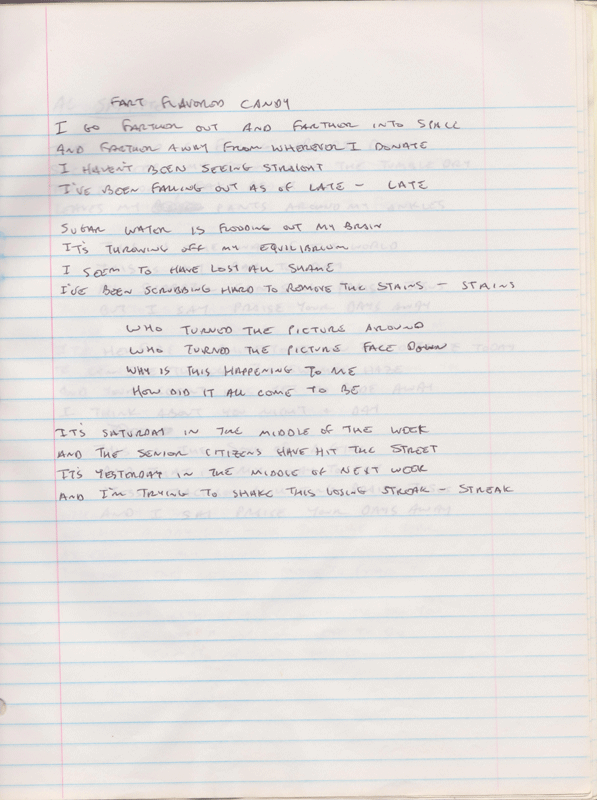 FART FLAVORED CANDY
I GO FARTHER OUT AND FARTHER INTO SPACE
AND FARTHER AWAY FROM WHEREVER I DONATE
I HAVEN'T BEEN SEEING STRAIGHT
I'VE BEEN FALLING OUT AS OF LATE - LATE
SUGAR WATER IS FLOODING OUT MY BRAIN
IT'S THROWING OFF MY EQUILIBRIUM
I SEEM TO HAVE LOST ALL SHAME
I'VE BEEN SCRUBBING HARD TO REMOVE THE STAINS - STAINS
WHO TURNED THE PICTURE AROUND
WHO TURNED THE PICTURE FACE DOWN
WHY IS THIS HAPPENING TO ME
HOW DID IT ALL COME TO BE
IT'S SATURDAY IN THE MIDDLE OF THE WEEK
AND THE SENIOR CITIZENS HAVE HIT THE STREET
IT'S YESTERDAY IN THE MIDDLE OF NEXT WEEK
AND I'M TRYING TO SHAKE THIS LOSING STREAK - STREAK